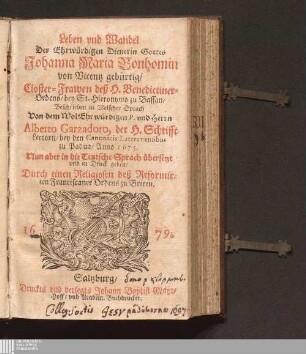 Leben vnd Wandel
Der Ehrwürdigen Dienerin Gottes
Johanna Maria Bonhomin
von Vicenz gebürtig/
Closter-Frawen deß H. Benedictiner-
Ordens/ bey St. Hieronymo zu Bassan/
Beschrieben in Welscher Sprach
Von dem Wol Ehrwürdigen P. und Herrn
Alberto Garzadoro, der H. Schrifft
Lectorn, bey den Canonicis Lateranensibus
zu Padua/ Anno 1675.
Nun aber in die Teutsche Sprach übersetzt
vnd in Druck geben/
Durch einen Religiosen deß Reformir-
ten Franciscaner Ordens zu Botzen.
16 79.
Salzburg/
Druckts vnd verlegts Johann Baptist Mayr/
Hoff- vnd Academ. Buchdrucker.
Colleg: Soctis Jesu